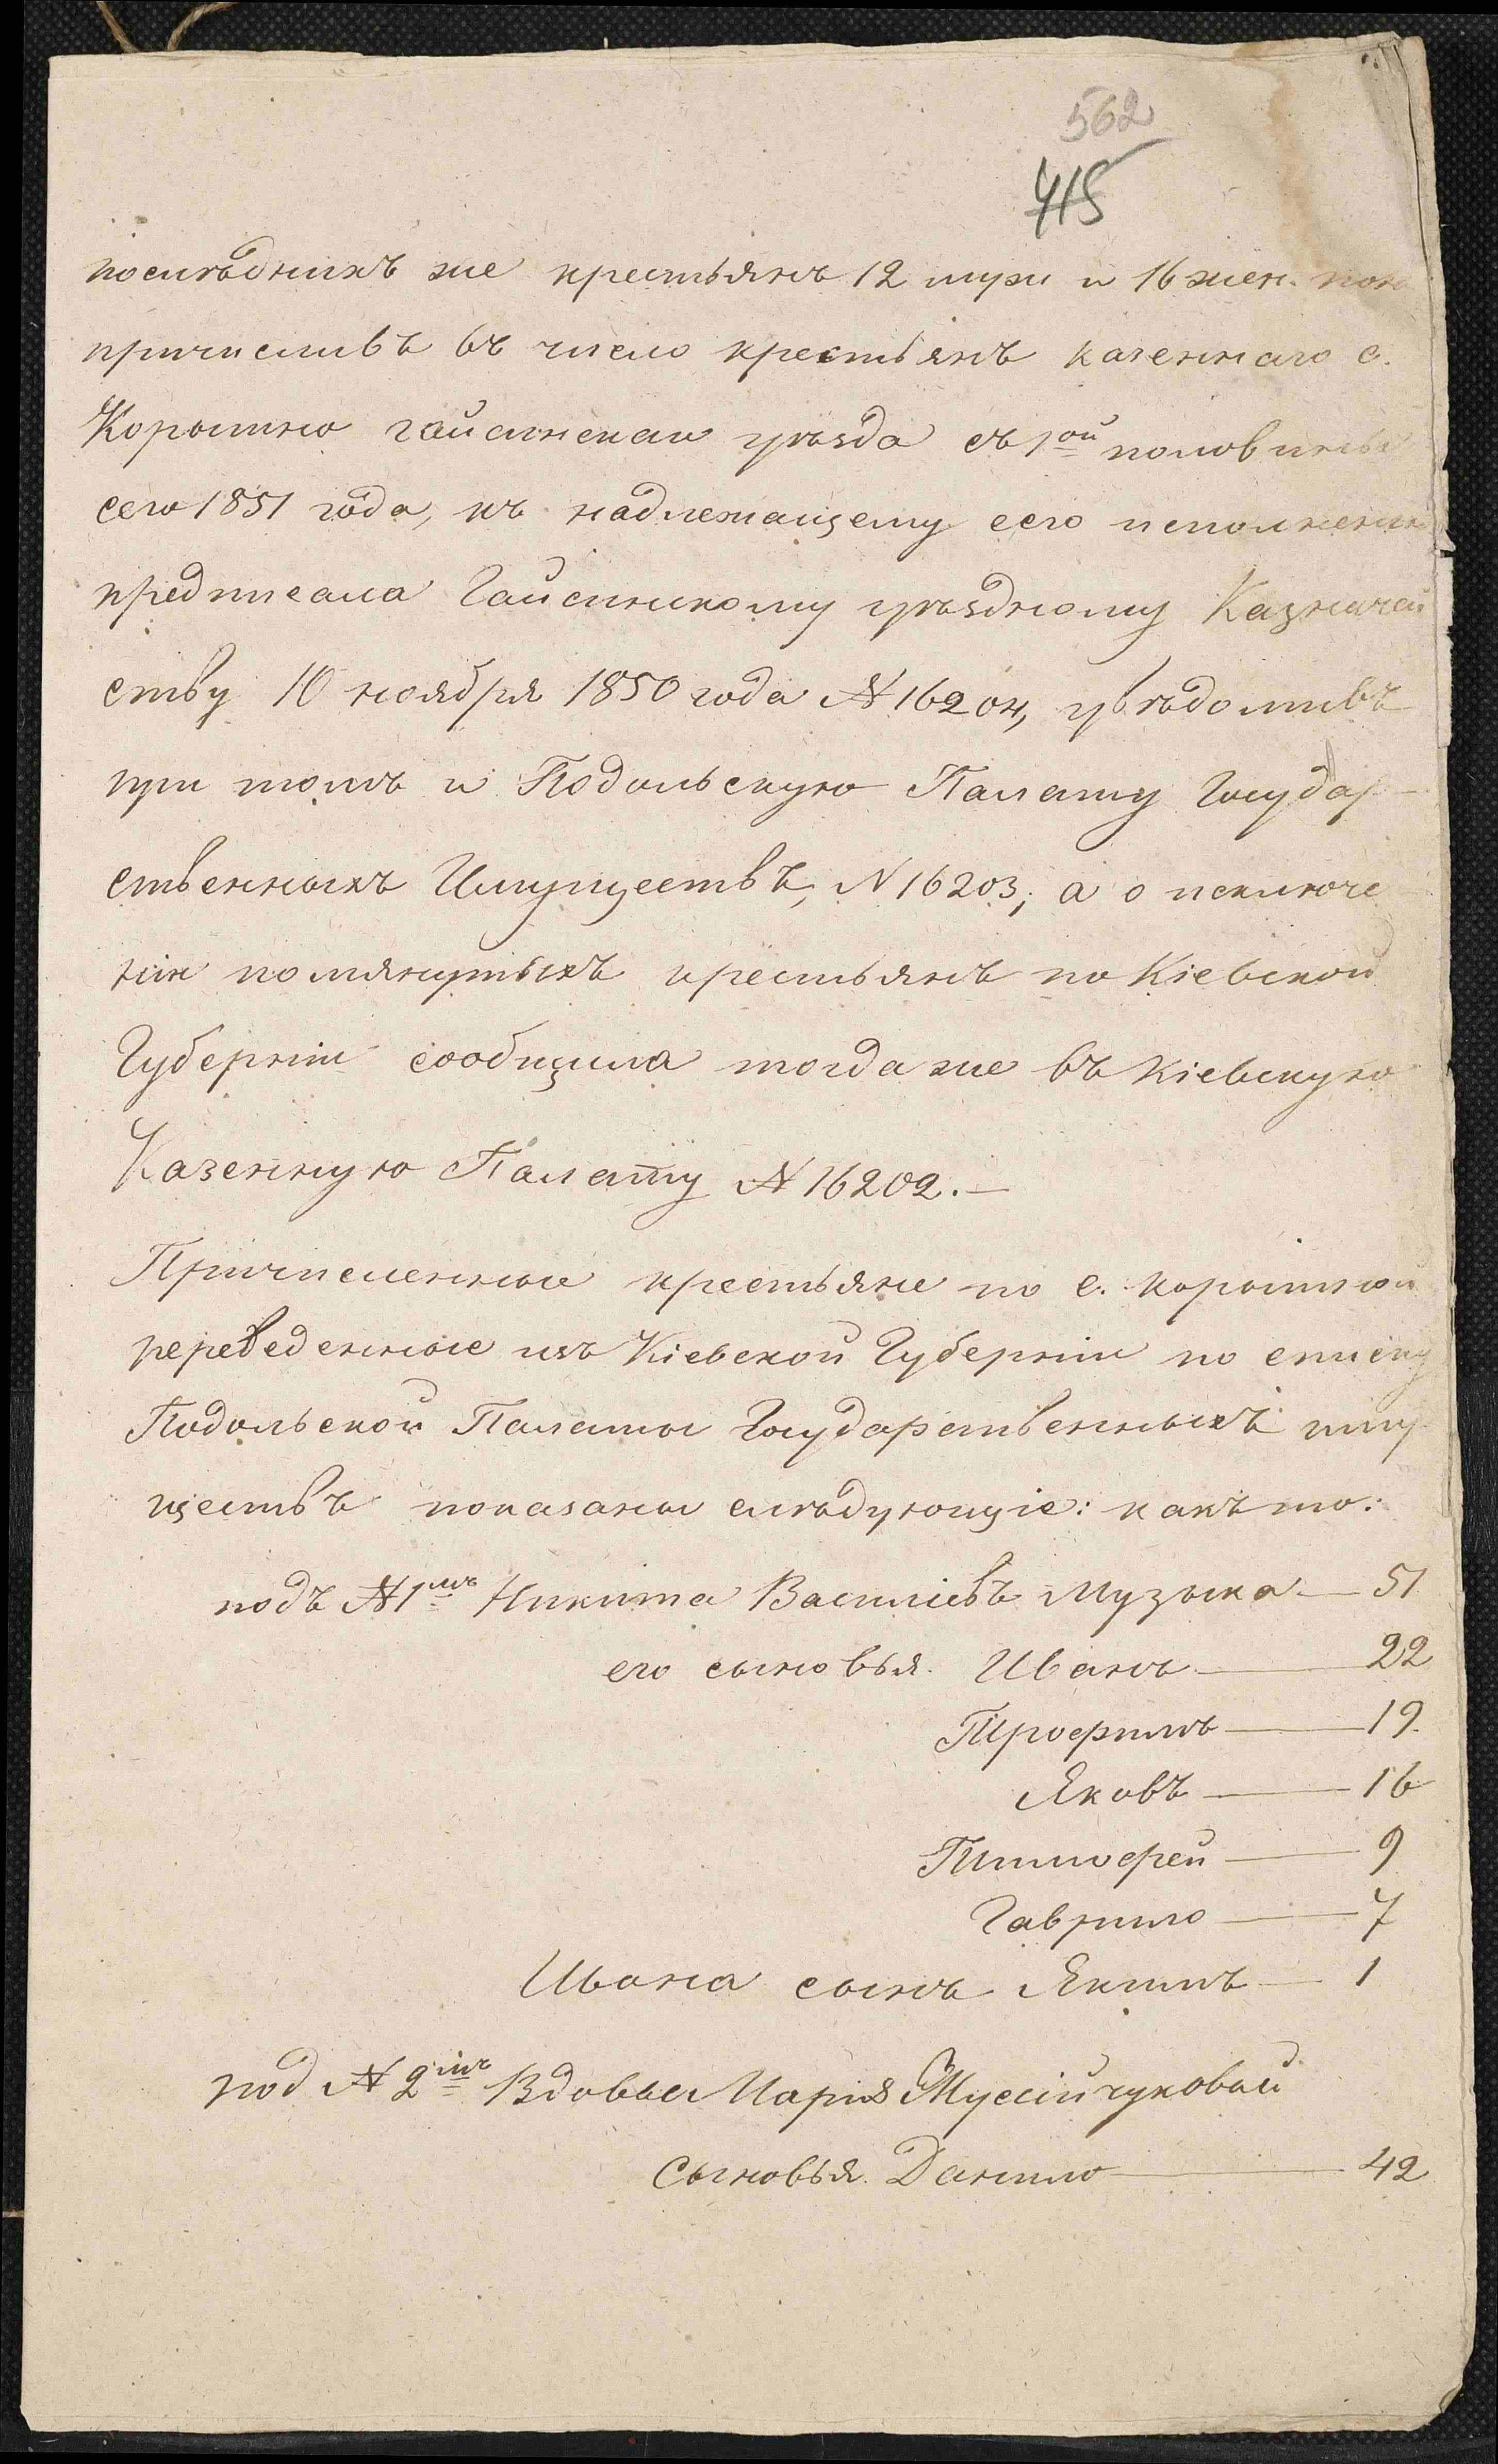 562
415
послѣднихъ же крестьянъ 12 муж и 16 жен. пола
причисливъ въ число крестьянъ казеннаго с.
Коромино гайсинскаи уѣзда съ 1ой половины
сего 1851 года, къ надлежащему сего исполнению
предписала Гайсинскому уѣздному Казначей
ству 10 ноября 1850 года № 16204, увѣдомивъ
при томъ и Подольскую Палату Государ-
ственныхъ Имуществъ, N 16203; а о исключе
ніи помянутыхъ крестьянъ по Кіевской
Губерніи сообщила тогда же въ Кіевскую
Казенную Палату № 16202.—
Причисленные крестьяне по с.
переведенные изъ Кіевской Губерніи по списку
Подольской Палаты Государственныхъ иму
ществъ показаны слѣдующіе: какъ то:
подъ № 1мъ Никита Василіевъ Музыка — 51
его сыновья. Иванъ — 22
Трофимъ — 19.
Яковъ — 16
Тимофей — 9
Гаврило — 7
Ивана сынъ Якимъ — 1
под № 2мъ Вдовы Марія Мусійчуковый
Сыновья. Данило — 42